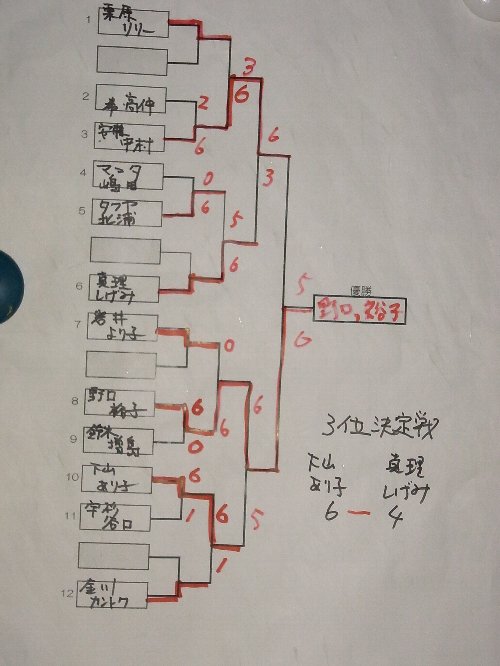 1
栗原
リリー
3
2
高仲
2
6
3
中村
6
6
4
マツダ
嶋田
0
3
5
タツヤ
北浦
6
5
6
6
真理
しげみ
5
優勝
野口,裕子
7
岩井
より子
0
6
8
野口
裕子
6
6
6
9
鈴木
増島
0
3位決定戦
10
下山
あり子
6
下山
あり子
真理
しげみ
11
宇杉
谷口
1
6
5
6 ー 4
1
12
金川
カントク